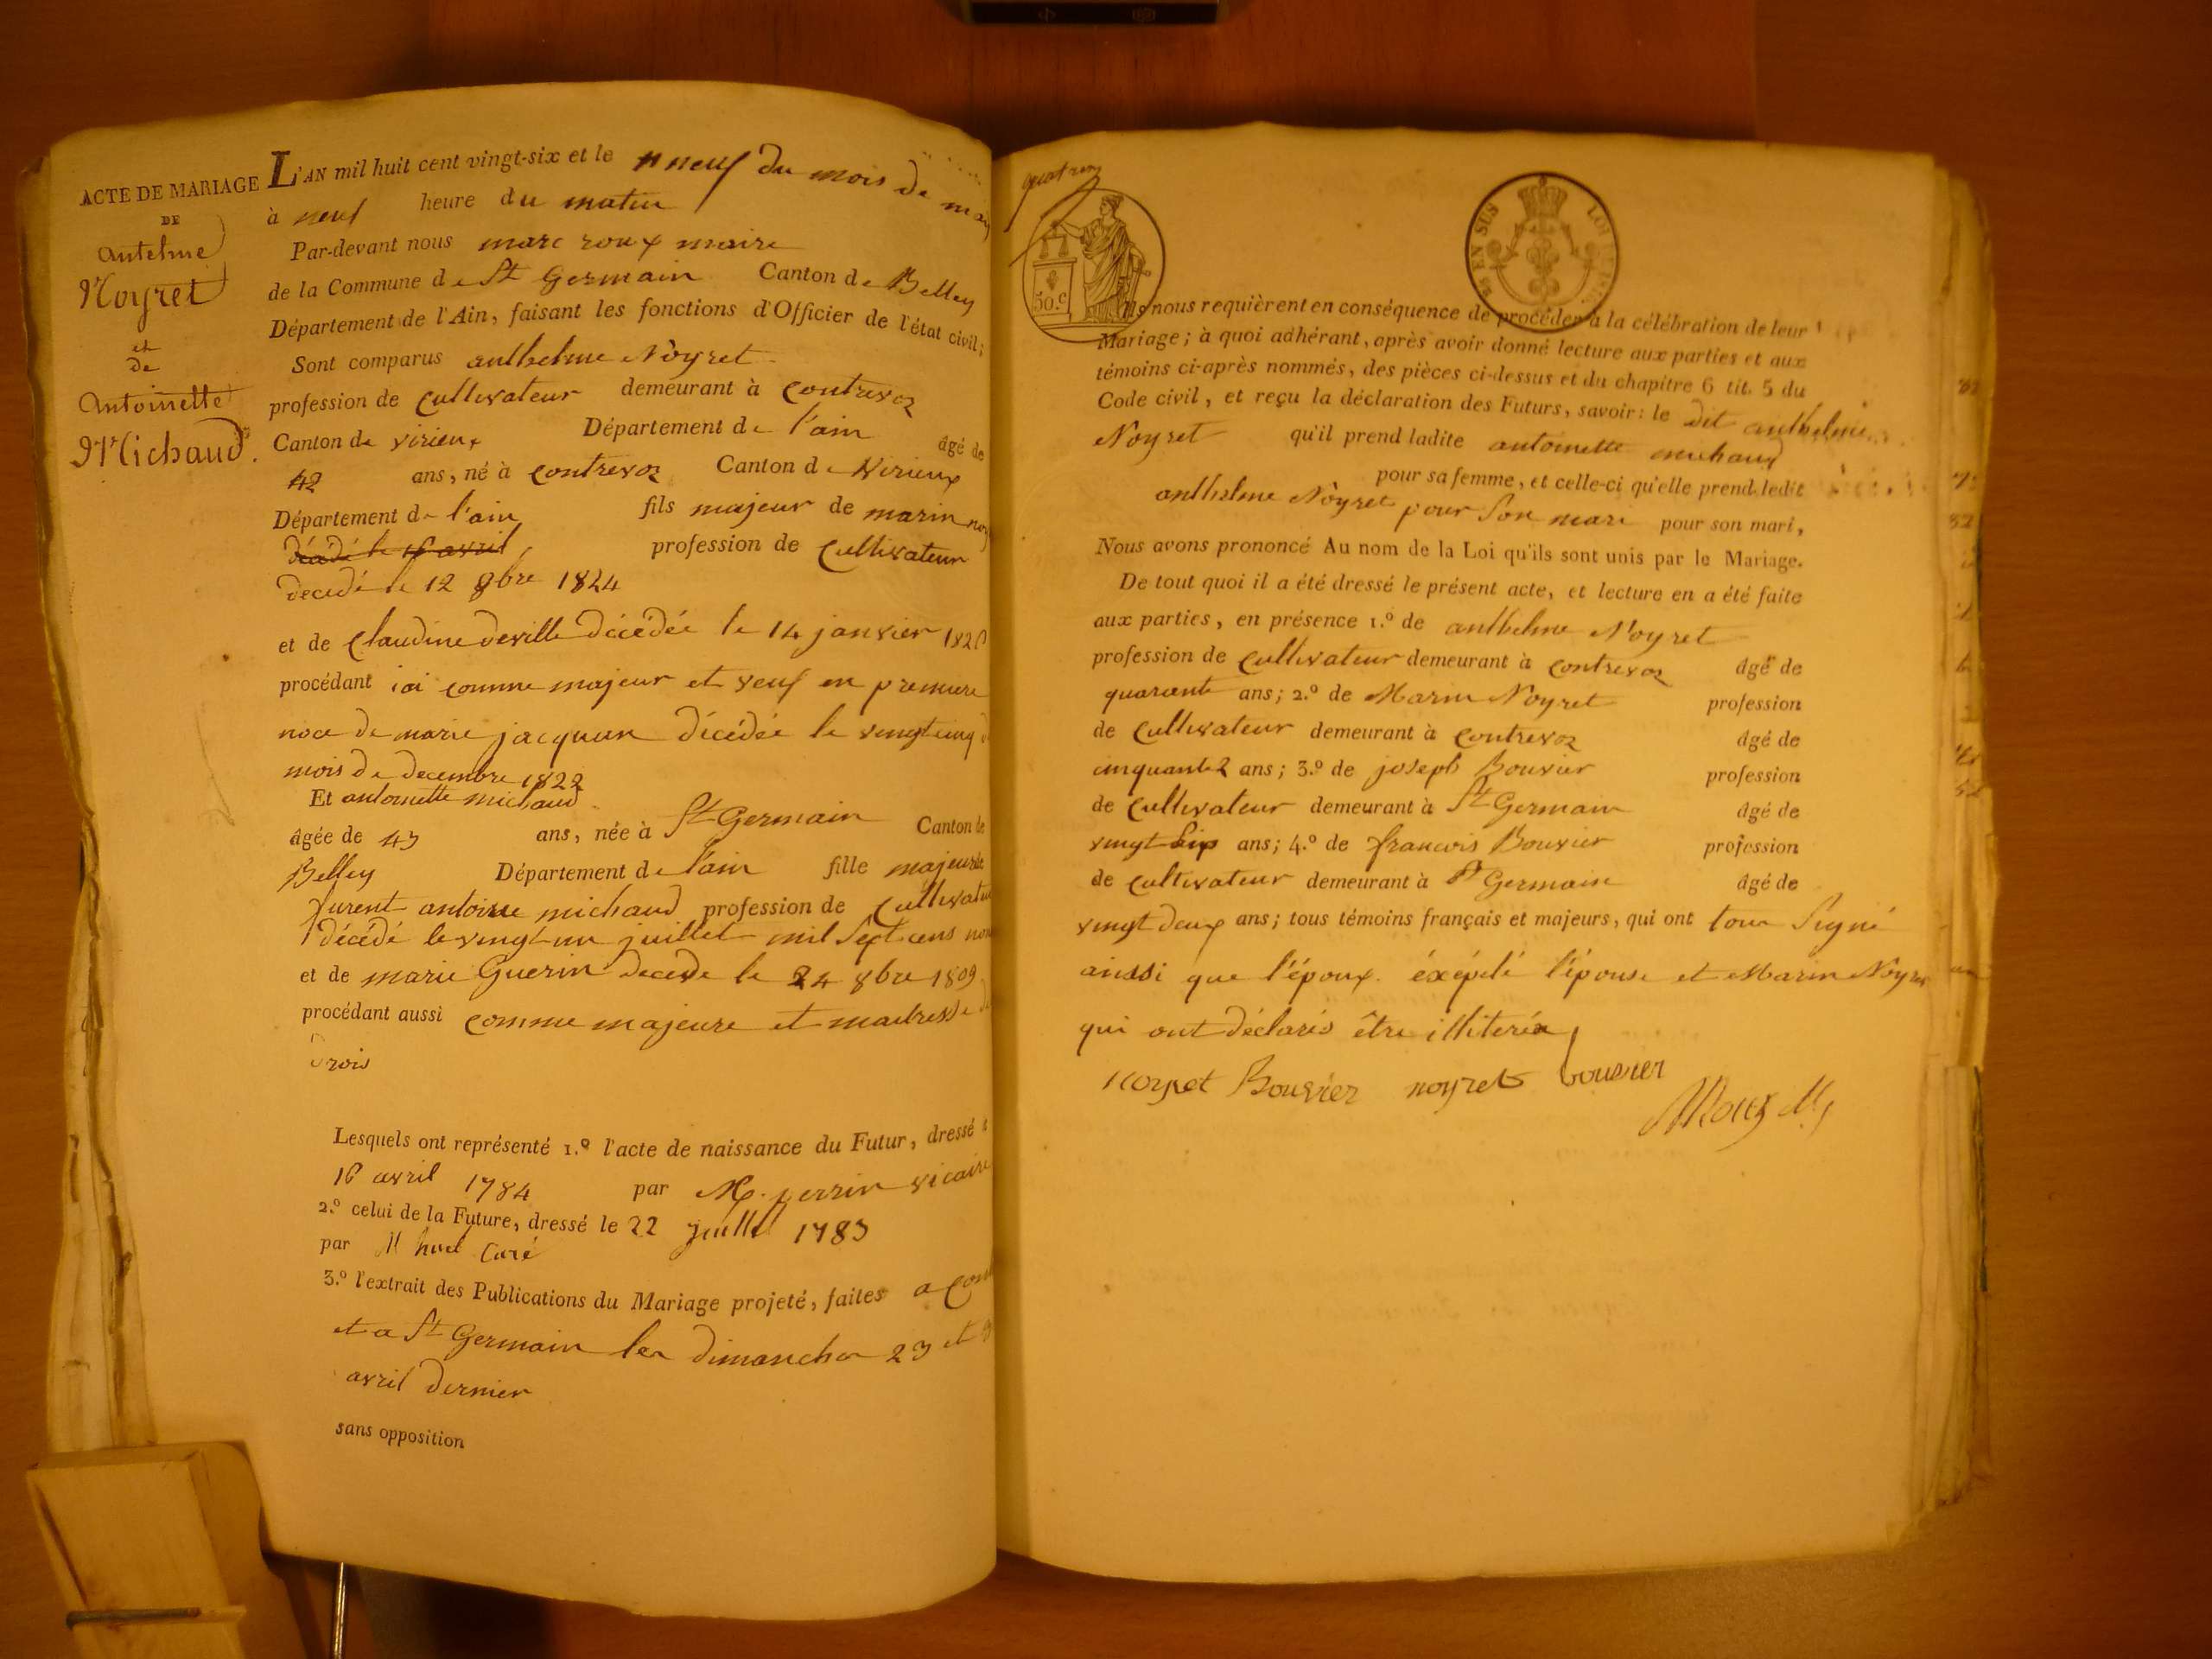 ACTE DE MARIAGE
DE
Antelme
Noyret
et
de
Antoinette
Michaud.
L'AN mil huit cent vingt-six et le neuf du mois de mai
à neuf heure du matin
Par-devant nous marc roux maire
de la Commune de St Germain Canton de Belley
Département de l'Ain, faisant les fonctions d'Officier de l'état civil;
Sont comparus anthelme Noyret
profession de Cultivateur demeurant à Contrevoz
Canton de virieux Département de l'ain âgé de
42 ans, né à Contrevoz Canton de Virieux
Département de l'ain fils majeur de marin noy
décédé le 16 avril profession de Cultivateur
décédé le 12 8bre 1824
et de Claudine deville décédée le 14 janvier 182
procédant ici comme majeur et veuf en premiere
noce de marie jacquin décédée le vingt cinq d
mois de decembre 1822
Et antoinette michaud
âgée de 43 ans, née à St Germain Canton de
Belley Département de l'ain fille majeure de
furent antoine michaud profession de Cultivateu
décédé le vingt un juillet mil sept cens non
et de marie Guerin decede le 24 8bre 1809
procédant aussi comme majeure et maitresse de
Drois
Lesquels ont représenté 1.º l'acte de naissance du Futur, dressé le
16 avril 1784 par Mr. perrin vicaire
2.º celui de la Future, dressé le 22 juillet 1783
par M Curé
3.º l'extrait des Publications du Mariage projeté, faites a Con
et a St Germain les dimanches 23 et
avril dernier
sans opposition
50.c
EN SUS
LOI
Ils nous requièrent en conséquence de procéder à la célébration de leur
Mariage; à quoi adhérant, après avoir donné lecture aux parties et aux
témoins ci-après nommés, des pièces ci-dessus et du chapitre 6 tit. 5 du
Code civil, et reçu la déclaration des Futurs, savoir: le dit anthelme
Noyret qu'il prend ladite antoinette michaud
pour sa femme, et celle-ci qu'elle prend ledit
anthelme Noyret pour son mari pour son mari,
Nous avons prononcé Au nom de la Loi qu'ils sont unis par le Mariage.
De tout quoi il a été dressé le présent acte, et lecture en a été faite
aux parties, en présence 1.º de anthelme Noyret
profession de Cultivateur demeurant à Contrevoz âgé de
quarante ans; 2.º de Marin Noyret profession
de Cultivateur demeurant à Contrevoz âgé de
cinquante 2 ans; 3.º de joseph Bouvier profession
de Cultivateur demeurant à St Germain âgé de
vingt six ans; 4.º de francois Bouvier profession
de Cultivateur demeurant à St Germain âgé de
vingt deux ans; tous témoins français et majeurs, qui ont tous signé
ainssi que l'époux. éxépté l'épouse et Marin Noyret
qui ont déclarés être illiterés
noyret Bouvier noyret bouvier
Roux